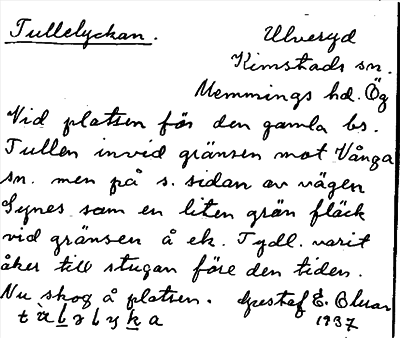 Tullelyckan.
Ulveryd
Kimstads sn.
Memmings hd. Ög
Vid platsen för den gamla bs.
Tullen invid gränsen mot Vånga
sn. men på s. sidan av vägen
Synes som en liten grön fläck
vid gränsen å ek. Tydl. varit
åker till stugan före den tiden.
Nu skog å platsen. Gustaf E.
1937